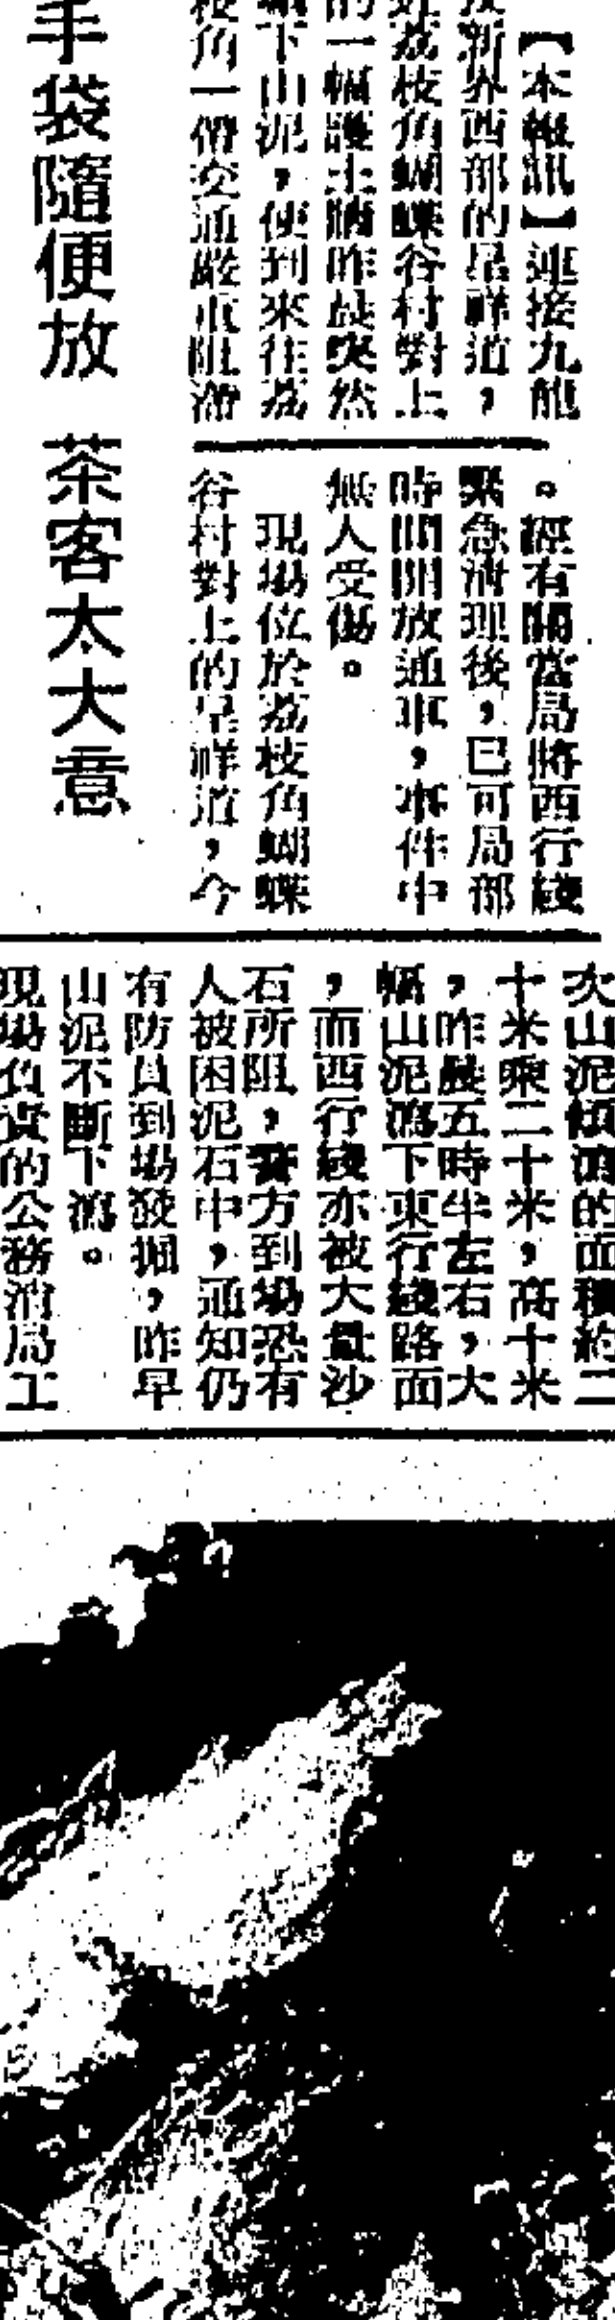 【本報訊】連接九龍
及新界西部的呈祥道，
近荔枝角蝴蝶谷村對上
的一幅護土牆昨晨突然
塌下山泥，使到來往荔
枝角一帶交通嚴重阻滯
。經有關當局將西行綫
緊急清理後，已可局部
時間開放通車，事件中
無人受傷。
現場位於荔枝角蝴蝶
谷村對上的呈祥道，今
次山泥傾瀉的面積約二
十米乘二十米，高十米
，昨晨五時半左右，大
幅山泥瀉下東行綫路面
，而西行綫亦被大量沙
石所阻，警方到場恐有
人被困泥石中，通知仍
有防員到場發掘，昨早
山泥不斷下瀉。
現場負責的公務消局工
手袋隨便放 茶客太大意